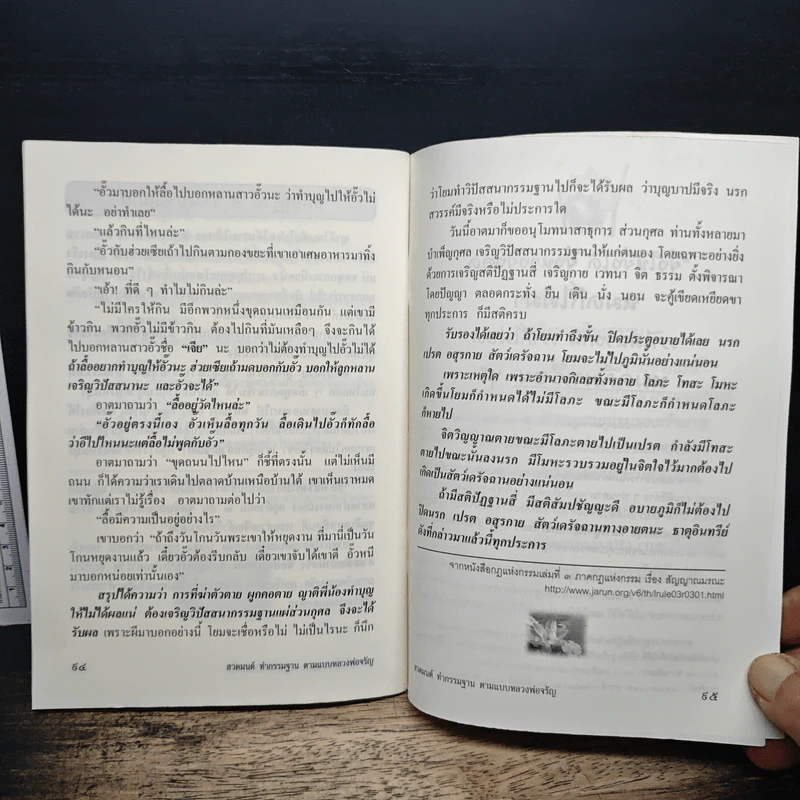 “อั๊วมาบอกให้ลื้อไปบอกหลานสาวอั๊วนะ ว่าทำบุญไปให้อั๊วไม่
ได้นะ อย่าทำเลย”
“แล้วกินที่ไหนล่ะ”
“อั๊วกับฮ่วยเซียเถ้าไปกินตามกองขยะที่เขาเอาเศษอาหารมาทิ้ง
กินกับหนอน”
“เอ้า! ที่ดี ๆ ทำไมไม่กินล่ะ”
“ไม่มีใครให้กิน มีอีกพวกหนึ่งขุดถนนเหมือนกัน แต่เขามี
ข้าวกิน พวกอั๊วไม่มีข้าวกิน ต้องไปกินที่มันเหลือๆ จึงจะกินได้
ไปบอกหลานสาวอั๊วชื่อ “เจีย” นะ บอกว่าไม่ต้องทำบุญไปอั๊วไม่ได้
ถ้าลื้ออยากทำบุญให้อั๊วนะ ฮ่วยเซียเถ้ามดบอกกับอั๊ว บอกให้ลูกหลาน
เจริญวิปัสสนานะ และอั๊วจะได้”
อาตมาถามว่า “ลื้ออยู่วัดไหนล่ะ”
“อั๊วอยู่ตรงนี้เอง อั๊วเห็นลื้อทุกวัน ลื้อเดินไปอั๊วก็ทักลื้อ
ว่าอีไปไหนนะแต่ลื้อไม่พูดกับอั๊ว”
อาตมาถามว่า “ขุดถนนไปไหน” ก็ชี้ที่ตรงนั้น แต่ไม่เห็นมี
ถนน ก็ได้ความว่าเราเดินไปตลาดบ้านเหนือบ้านใต้ เขาเห็นเราหมด
เขาทักแต่เราไม่รู้เรื่อง อาตมาถามต่อไปว่า
“ลื้อมีความเป็นอยู่อย่างไร”
เขาบอกว่า “ถ้าถึงวันโกนวันพระเขาให้หยุดงาน ที่มานี่เป็นวัน
โกนหยุดงานแล้ว เดี๋ยวอั๊วต้องรีบกลับ เดี๋ยวเขาจับได้เขาตี อั๊วหนี
มาบอกหน่อยเท่านั้นเอง”
สรุปได้ความว่า การที่ฆ่าตัวตาย ผูกคอตาย ญาติพี่น้องทำบุญ
ให้ไม่ได้ผลแน่ ต้องเจริญวิปัสสนากรรมฐานแผ่ส่วนกุศล จึงจะได้
รับผล เพราะผีมาบอกอย่างนี้ โยมจะเชื่อหรือไม่ ไม่เป็นไรนะ ก็นึก
๙๔ สวดมนต์ ทำกรรมฐาน ตามแบบหลวงพ่อจรัญ
ว่าโยมทำวิปัสสนากรรมฐานไปก็จะได้รับผล ว่าบุญบาปมีจริง นรก
สวรรค์มีจริงหรือไม่ประการใด
วันนี้อาตมาก็ขออนุโมทนาสาธุการ ส่วนกุศล ท่านทั้งหลายมา
บำเพ็ญกุศล เจริญวิปัสสนากรรมฐานให้แก่ตนเอง โดยเฉพาะอย่างยิ่ง
ด้วยการเจริญสติปัฏฐานสี่ เจริญกาย เวทนา จิต ธรรม ตั้งพิจารณา
โดยปัญญา ตลอดกระทั่ง ยืน เดิน นั่ง นอน จะคู้เขียดเหยียดขา
ทุกประการ ก็มีสติครบ
รับรองได้เลยว่า ถ้าโยมทำถึงขั้น ปิดประตูอบายได้เลย นรก
เปรต อสุรกาย สัตว์เดรัจฉาน โยมจะไม่ไปภูมินั้นอย่างแน่นอน
เพราะเหตุใด เพราะอำนาจกิเลสทั้งหลาย โลภะ โทสะ โมหะ
เกิดขึ้นโยมก็กำหนดได้ไม่มีโลภะ ขณะมีโลภะก็กำหนดโลภะ
ก็หายไป
จิตวิญญาณตายขณะมีโลภะตายไปเป็นเปรต กำลังมีโทสะ
ตายไปขณะนั้นลงนรก มีโมหะรวบรวมอยู่ในจิตใจไว้มากต้องไป
เกิดเป็นสัตว์เดรัจฉานอย่างแน่นอน
ถ้ามีสติปัฏฐานสี่ มีสติสัมปชัญญะดี อบายภูมิก็ไม่ต้องไป
ปิดนรก เปรต อสุรกาย สัตว์เดรัจฉานทางอายตนะ ธาตุอินทรีย์
ดังที่กล่าวมาแล้วนี้ทุกประการ
จากหนังสือกฎแห่งกรรมเล่มที่ ๓ ภาคกฎแห่งกรรม เรื่อง สัญญาณมรณะ
http://www.jarun.org/v6/th/lrule03r0301.html
สวดมนต์ ทำกรรมฐาน ตามแบบหลวงพ่อจรัญ ๙๕